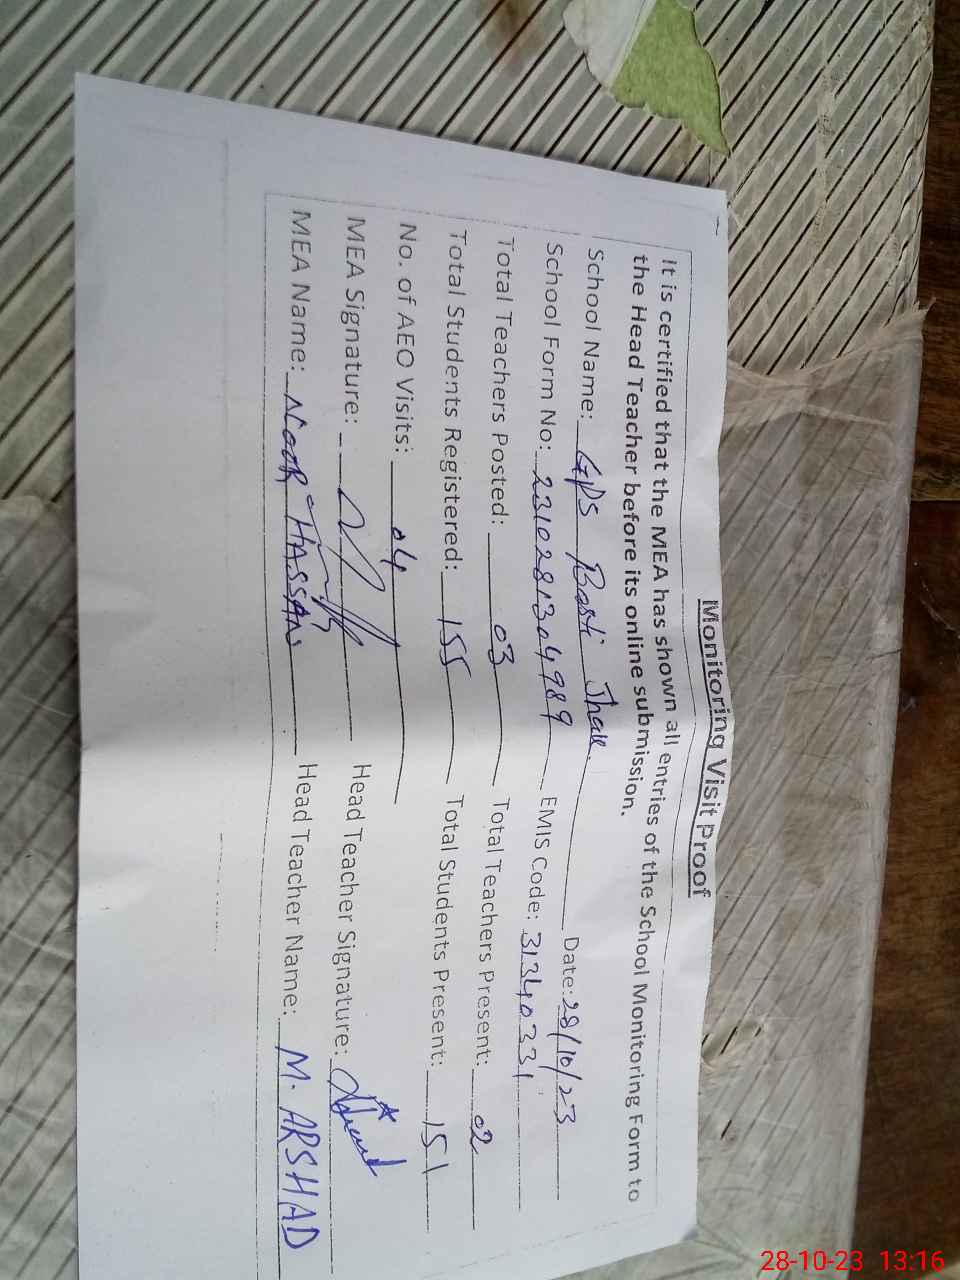 Monitoring Visit Proof
It is certified that the MEA has shown all entries of the School Monitoring Form to
the Head Teacher before its online submission.
School Name: GPS Basti Date: 28/10/23
School Form No: 2310281304989 EMIS Code: 31340331
Total Teachers Posted: 03 Total Teachers Present: 02
Total Students Registered: 155 Total Students Present: 151
No. of AEO Visits: 04
MEA Signature: Head Teacher Signature:
MEA Name: NOOR HASSAN Head Teacher Name: M. ARSHAD
28-10-23 13:16